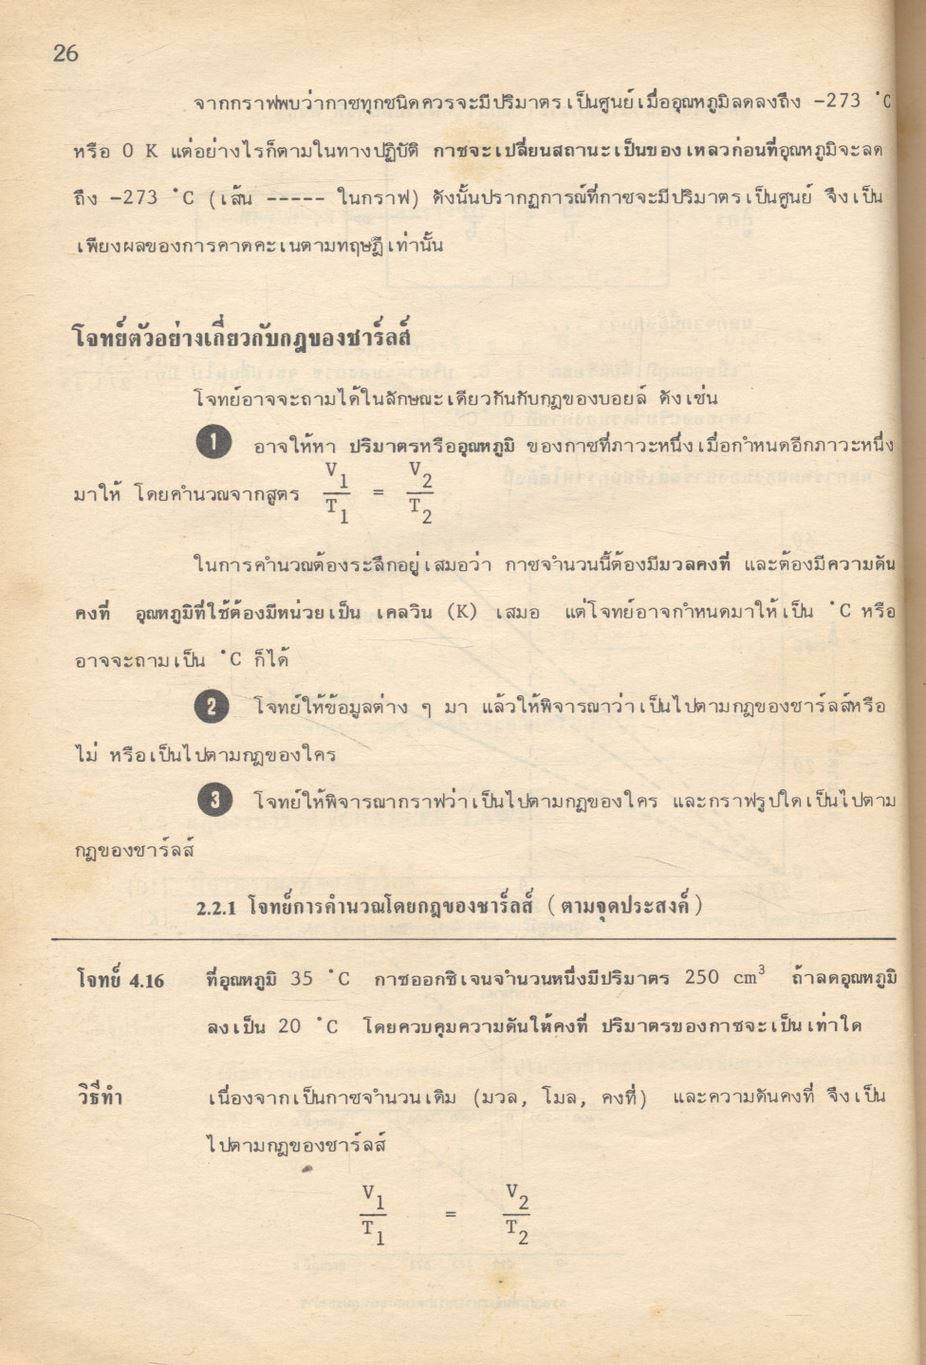 26
จากกราฟพบว่ากาซทุกชนิดควรจะมีปริมาตรเป็นศูนย์เมื่ออุณหภูมิลดลงถึง -273 °C
หรือ 0 K แต่อย่างไรก็ตามในทางปฏิบัติ กาซจะเปลี่ยนสถานะเป็นของเหลวก่อนที่อุณหภูมิจะลด
ถึง -273 °C (เส้น ----- ในกราฟ) ดังนั้นปรากฏการณ์ที่กาซจะมีปริมาตรเป็นศูนย์ จึงเป็น
เพียงผลของการคาดคะเนตามทฤษฎีเท่านั้น
โจทย์ตัวอย่างเกี่ยวกับกฎของชาร์ลส์
โจทย์อาจจะถามได้ในลักษณะเดียวกันกับกฎของบอยล์ ดังเช่น
1 อาจให้หา ปริมาตรหรืออุณหภูมิ ของกาซที่ภาวะหนึ่งเมื่อกำหนดอีกภาวะหนึ่ง
มาให้ โดยคำนวณจากสูตร V1/T1 = V2/T2
ในการคำนวณต้องระลึกอยู่เสมอว่า กาซจำนวนนี้ต้องมีมวลคงที่ และต้องมีความดัน
คงที่ อุณหภูมิที่ใช้ต้องมีหน่วยเป็น เคลวิน (K) เสมอ แต่โจทย์อาจกำหนดมาให้เป็น °C หรือ
อาจจะถามเป็น °C ก็ได้
2 โจทย์ให้ข้อมูลต่าง ๆ มา แล้วให้พิจารณาว่าเป็นไปตามกฎของชาร์ลส์หรือ
ไม่ หรือเป็นไปตามกฎของใคร
3 โจทย์ให้พิจารณากราฟว่าเป็นไปตามกฎของใคร และกราฟรูปใดเป็นไปตาม
กฎของชาร์ลส์
2.2.1 โจทย์การคำนวณโดยกฎของชาร์ลส์ (ตามจุดประสงค์)
โจทย์ 4.16 ที่อุณหภูมิ 35 °C กาซออกซิเจนจำนวนหนึ่งมีปริมาตร 250 cm³ ถ้าลดอุณหภูมิ
ลงเป็น 20 °C โดยควบคุมความดันให้คงที่ ปริมาตรของกาซจะเป็นเท่าใด
วิธีทำ เนื่องจากเป็นกาซจำนวนเดิม (มวล, โมล, คงที่) และความดันคงที่ จึงเป็น
ไปตามกฎของชาร์ลส์
V1/T1 = V2/T2